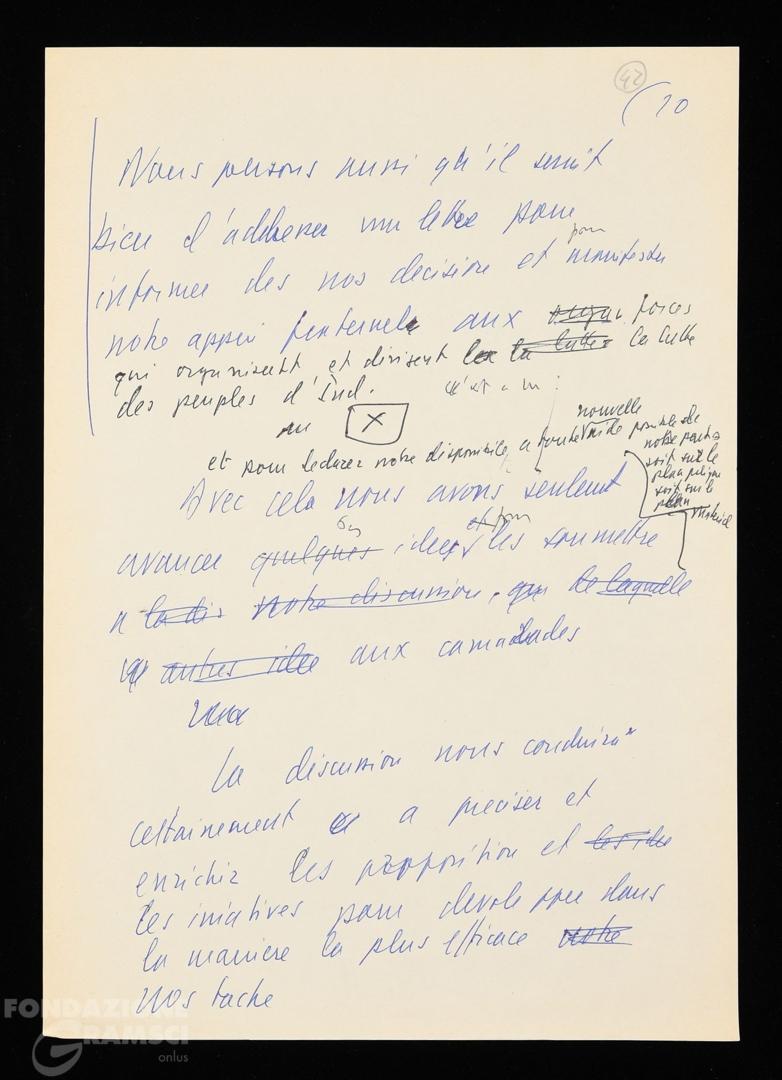 42
(10
Nous pensons aussi qu'il serait
bien d'adresser une lettre pour
informer des nos decisions et pour manifester
notre appui fraternel aux forces
qui organisent et dirisent la lutte la lutte
des peuples d'Ind.
c'est a lu :
ou X
et pour declarer notre disponibilie, a toute nouvelle possible de
notre partie
soit sur le
plan politique
soit sur le
plan materiel
Avec cela nous avons seulement
avancer quelques idees et pour les soumettre
a la dis notre discussion, que de laquelle
autres idee aux camarades
La discussion nous conduira
certainement a preciser et
enrichir les propposition et les ide
les iniatives pour develo pper dans
la maniere la plus efficace notre
nos tache
FONDAZIONE
GRAMSCI
onlus